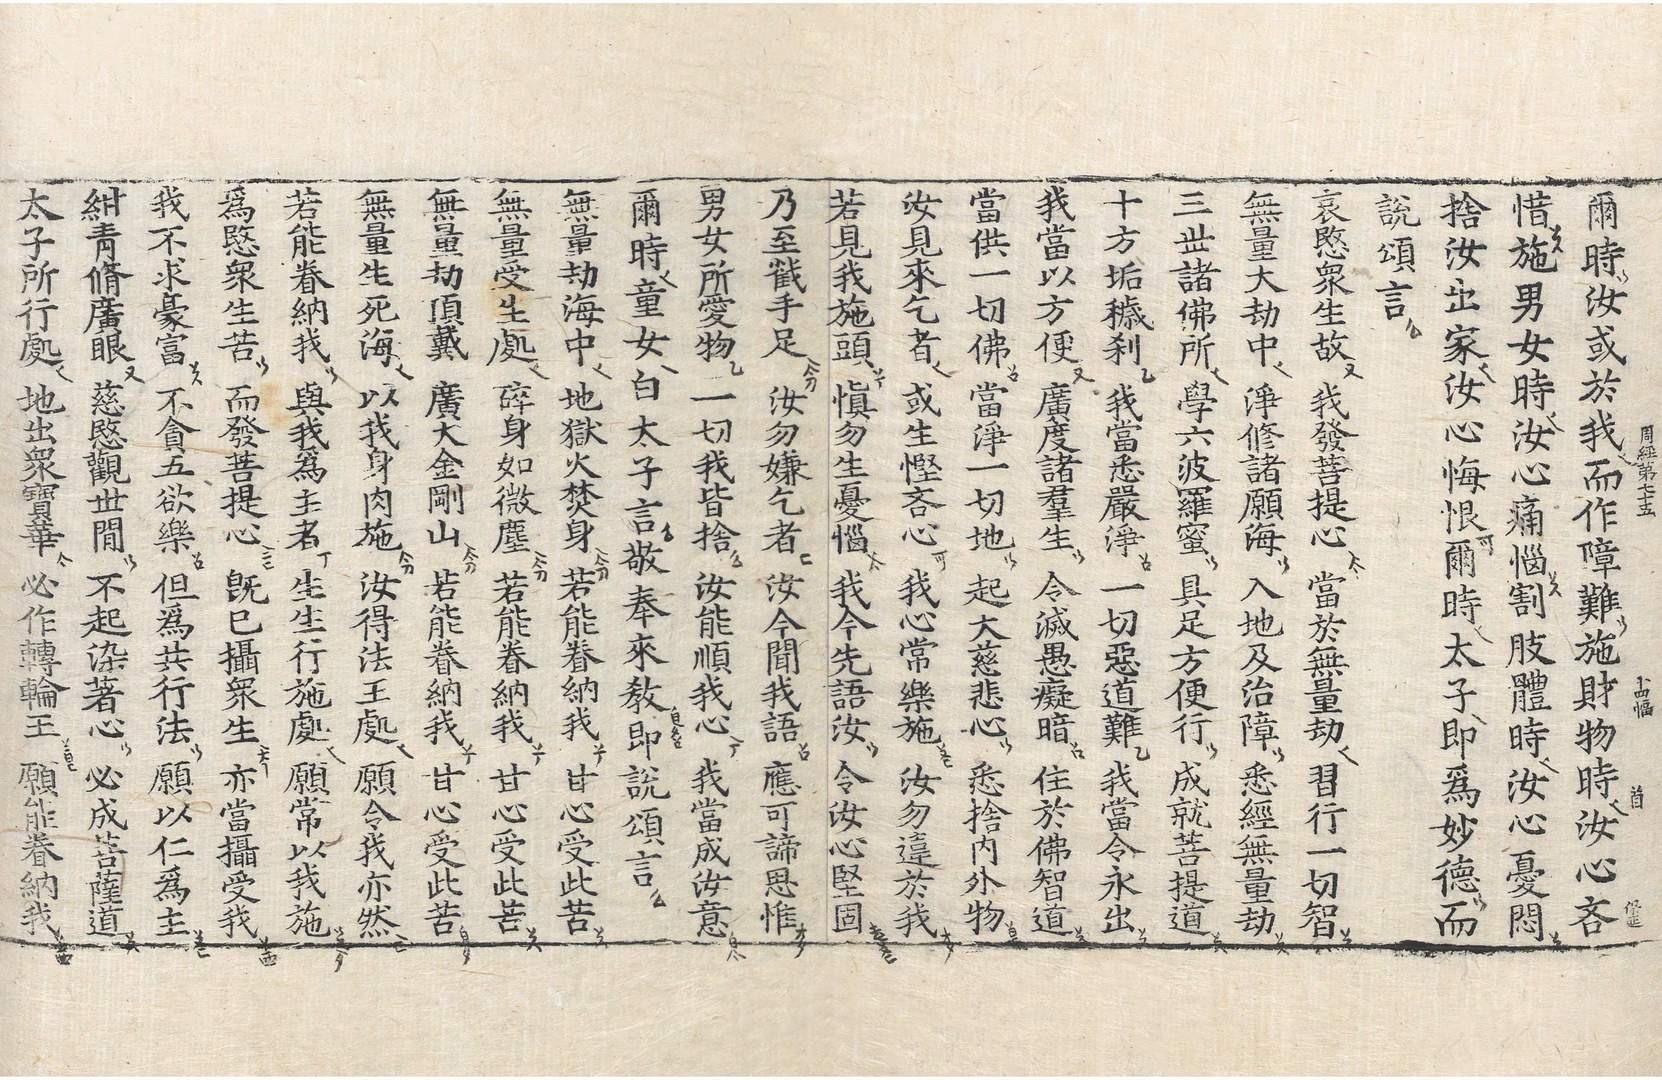 爾時汝或於我而作障難施財物時汝心吝
惜施男女時汝心痛惱割肢體時汝心憂悶
捨汝出家汝心悔恨爾時太子即爲妙德而
說頌言
哀愍衆生故 我發菩提心 當於無量劫 習行一切智
無量大劫中 淨修諸願海 入地及治障 悉經無量劫
三世諸佛所 學六波羅蜜 具足方便行 成就菩提道
十方垢穢刹 我當悉嚴淨 一切惡道難 我當令永出
我當以方便 廣度諸羣生 令滅愚癡暗 住於佛智道
當供一切佛 當淨一切地 起大慈悲心 悉捨內外物
汝見來乞者 或生慳吝心 我心常樂施 汝勿違於我
若見我施頭 愼勿生憂惱 我今先語汝 令汝心堅固
乃至截手足 汝勿嫌乞者 汝今聞我語 應可諦思惟
男女所愛物 一切我皆捨 汝能順我心 我當成汝意
爾時童女白太子言敬奉來敎即說頌言
無量劫海中 地獄火焚身 若能眷納我 甘心受此苦
無量受生處 碎身如微塵 若能眷納我 甘心受此苦
無量劫頂戴 廣大金剛山 若能眷納我 甘心受此苦
無量生死海 以我身肉施 汝得法王處 願令我亦然
若能眷納我 與我爲主者 生生行施處 願常以我施
爲愍衆生苦 而發菩提心 旣已攝衆生 亦當攝受我
我不求豪富 不貪五欲樂 但爲共行法 願以仁爲主
紺青脩廣眼 慈愍觀世間 不起染著心 必成菩薩道
太子所行處 地出衆寶華 必作轉輪王 願能眷納我
周經第七十五
十四幅